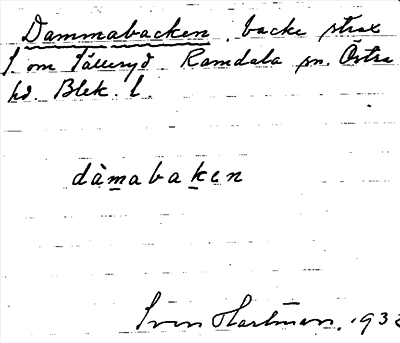 Dammabacken. backe strax
f om Tålleryd Ramdala sn. Östra
hd Blek. l.
dàmabaken
Sven Hartman. 193